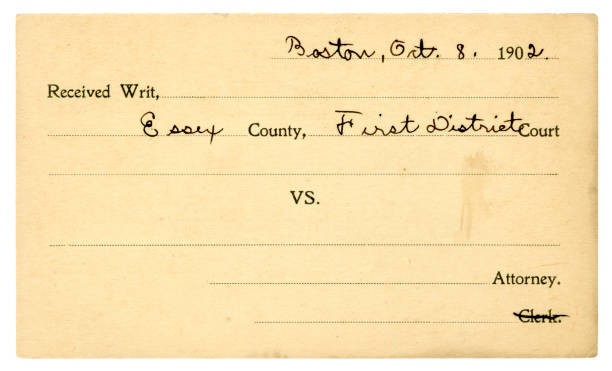 Boston, Oct. 8. 1902.
Received Writ,
Essex County, First District Court
VS.
Attorney.
Clerk.